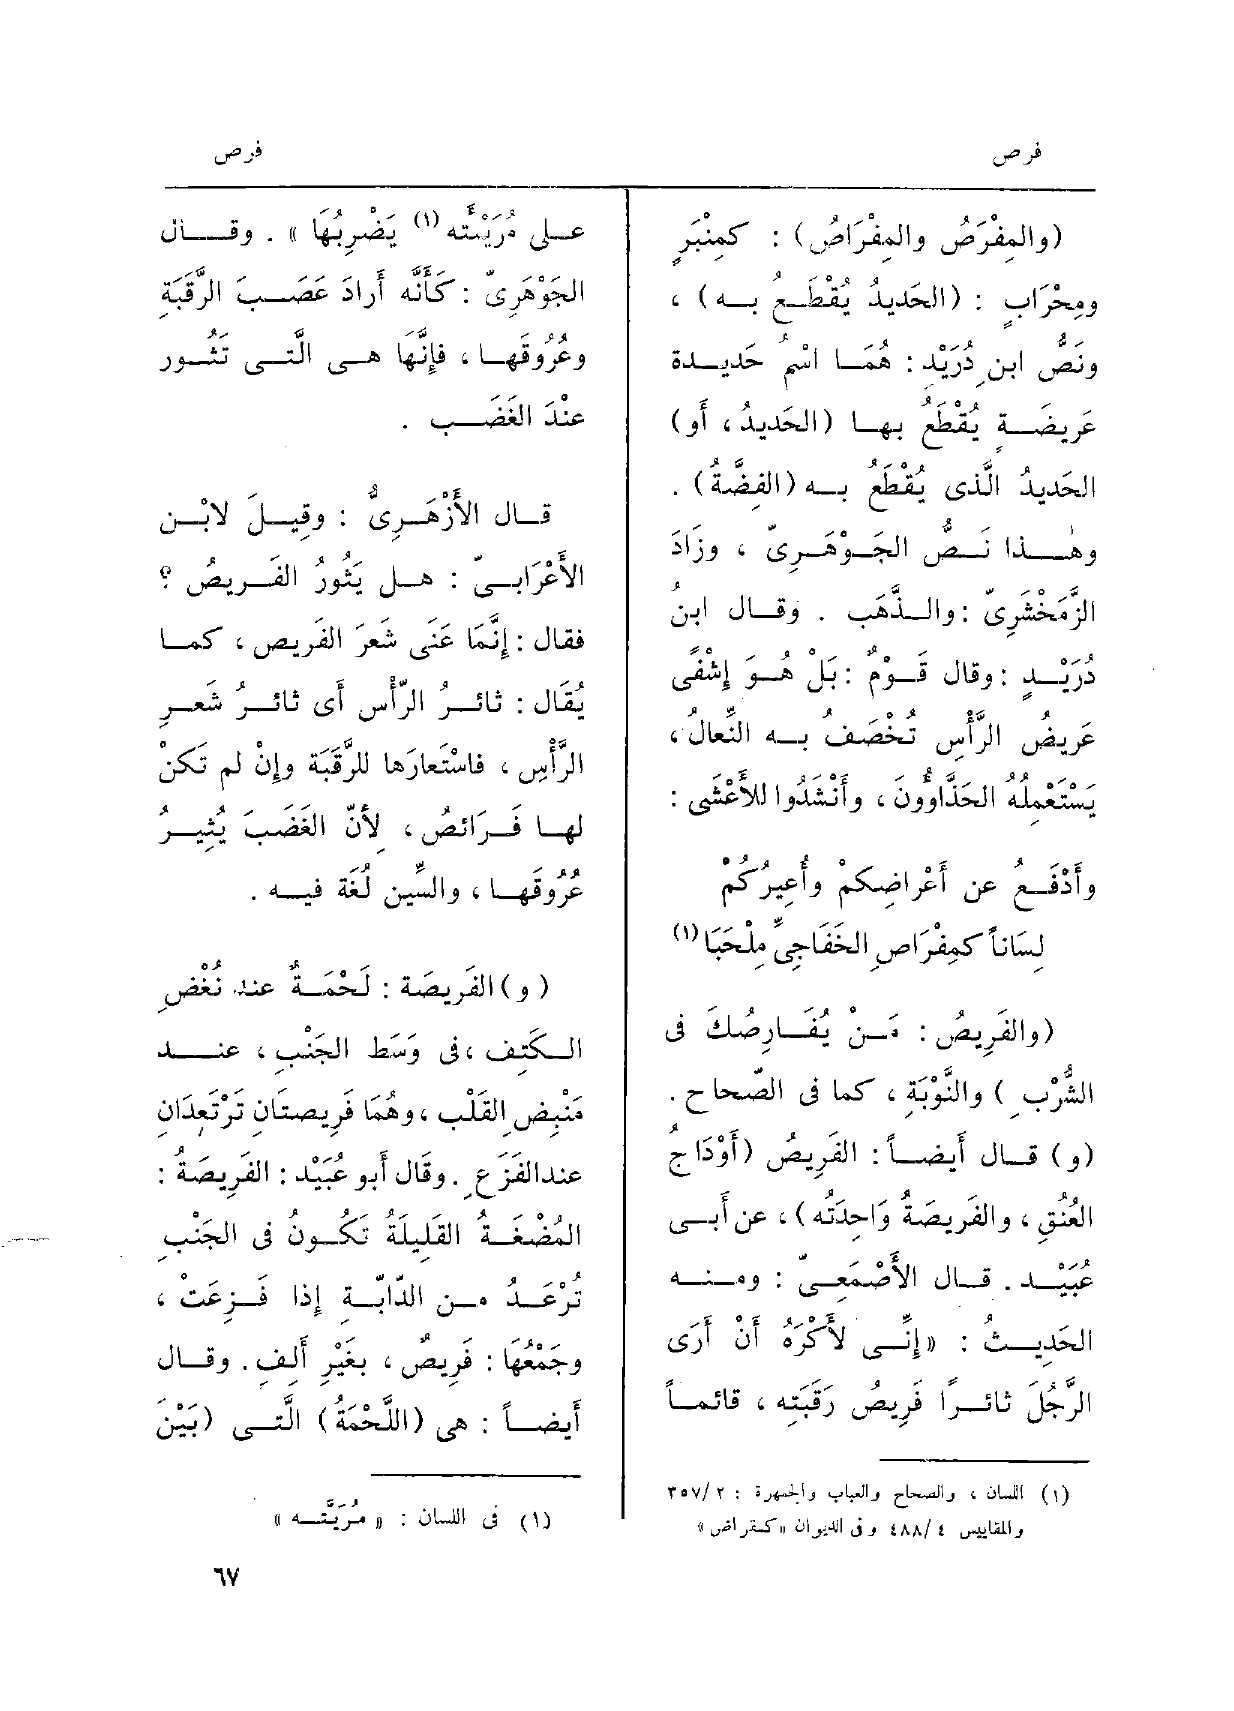 فرص
فرص
(والمِفْرَصُ والمِفْرَاصُ) : كمِنْبَرٍ
ومِحْرَابٍ : (الحَدِيدُ يُقْطَعُ به) ،
ونَصُّ ابنِ دُرَيْد : هُمَا اسْمُ حَدِيدة
عَرِيضَةٍ يُقْطَعُ بها (الحَدِيدُ ، أَو)
الحَدِيدُ الَّذى يُقْطَعُ به (الفِضَّةُ) .
وهٰذا نَصُّ الجَوْهَرِىّ ، وزَادَ
الزَّمَخْشَرِىّ : والذَّهَب . وقال ابنُ
دُرَيْدٍ : وقال قَوْمٌ : بَلْ هُوَ إِشْفًى
عَرِيضُ الرَّأْسِ تُخْصَفُ به النِّعالُ ،
يَسْتَعْمِلُهُ الحَذَّاؤُونَ ، وأَنْشَدُوا للأَعْشَى :
وأَدْفَعُ عن أَعْراضِكمْ وأُعِيرُكُمْ
لِسَاناً كمِفْرَاصِ الخَفَاجِيِّ مِلْحَبَا(١)
(والفَرِيصُ : مَنْ يُفَارِصُكَ فى
الشُّرْبِ ) والنَّوْبَةِ ، كما فى الصّحاح .
(و) قال أَيضاً : الفَرِيصُ (أَوْدَاجُ
العُنُقِ ، والفَرِيصَةُ وَاحِدَتُه) ، عن أَبى
عُبَيْد . قال الأَصْمَعِىّ : ومنه
الحَدِيثُ : «إِنِّى لأَكْرَهُ أَنْ أَرَى
الرَّجُلَ ثائرًا فَرِيصُ رَقَبَتِه ، قائماً
(١) اللسان ، والصحاح والعباب والجمهرة : ٣٥٧/٢
والمقاييس ٤٨٨/٤ وفى الديوان «كمقراض»
على مُرَيْئَتِه(١) يَضْرِبُهَا » . وقال
الجَوْهَرِىّ : كأَنَّه أَرادَ عَصَبَ الرَّقَبَةِ
وعُرُوقَها ، فإِنَّها هى الَّتى تَثُور
عنْدَ الغَضَب .
قال الأَزْهَرِىُّ : وقِيلَ لابْنِ
الأَعْرَابىّ : هل يَثُورُ الفَرِيصُ ؟
فقال : إِنَّمَا عَنَى شَعرَ الفَرِيصِ ، كما
يُقَال : ثائرُ الرَّأْسِ أَى ثائرُ شَعرِ
الرَّأْسِ ، فاسْتَعارَها للرَّقَبَة وإِنْ لم تَكن
لها فَرَائصُ ، لأَنّ الغَضَبَ يُثِيرُ
عُرُوقَها ، والسِّين لُغَة فيه .
( و) الفَرِيصَة : لَحْمَةٌ عند نُغْضِ
الكَتِف ، فى وَسَط الجَنْبِ ، عند
مَنْبِضِ القَلْبِ ، وهُمَا فَرِيصَتانِ تَرْتَعِدَانِ
عند الفَزَعِ . وقال أَبو عُبَيْد : الفَرِيصَةُ :
المُضْغَةُ القَلِيلَةُ تَكُونُ فى الجَنْبِ
تُرْعَدُ من الدّابَّةِ إِذا فَزِعَتْ ،
وجَمْعُهَا : فَرِيصٌ ، بغَيْرِ أَلِف . وقال
أَيضاً : هى (اللَّحْمَةُ) الَّتى (بَيْنَ
(١) فى اللسان : « مُرَيَّتِه »
٦٧